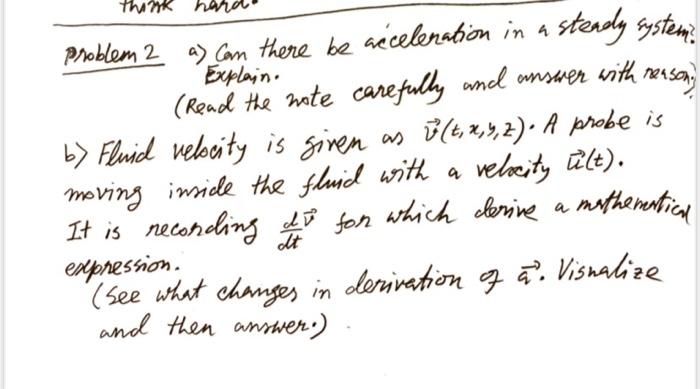 think hard.
Problem 2 a) Can there be acceleration in a steady system?
Explain.
(Read the note carefully and answer with reason)
b) Fluid velocity is given as v⃗(t,x,y,z). A probe is
moving inside the fluid with a velocity u⃗(t).
It is recording dv⃗/dt for which derive a mathematical
expression.
(See what changes in derivation of a⃗. Visualize
and then answer.)